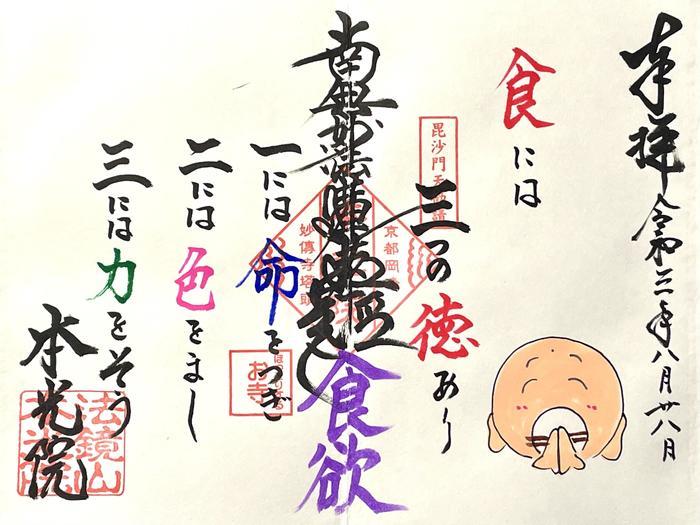 奉拝 令和三年八月廿八日
食には
三つの徳あり
毘沙門天
京都岡
南無妙法蓮華経
食欲
妙傳寺塔頭
一には命をつぎ
お寺
二には色をまし
三には力をそう
本光院
法鏡山